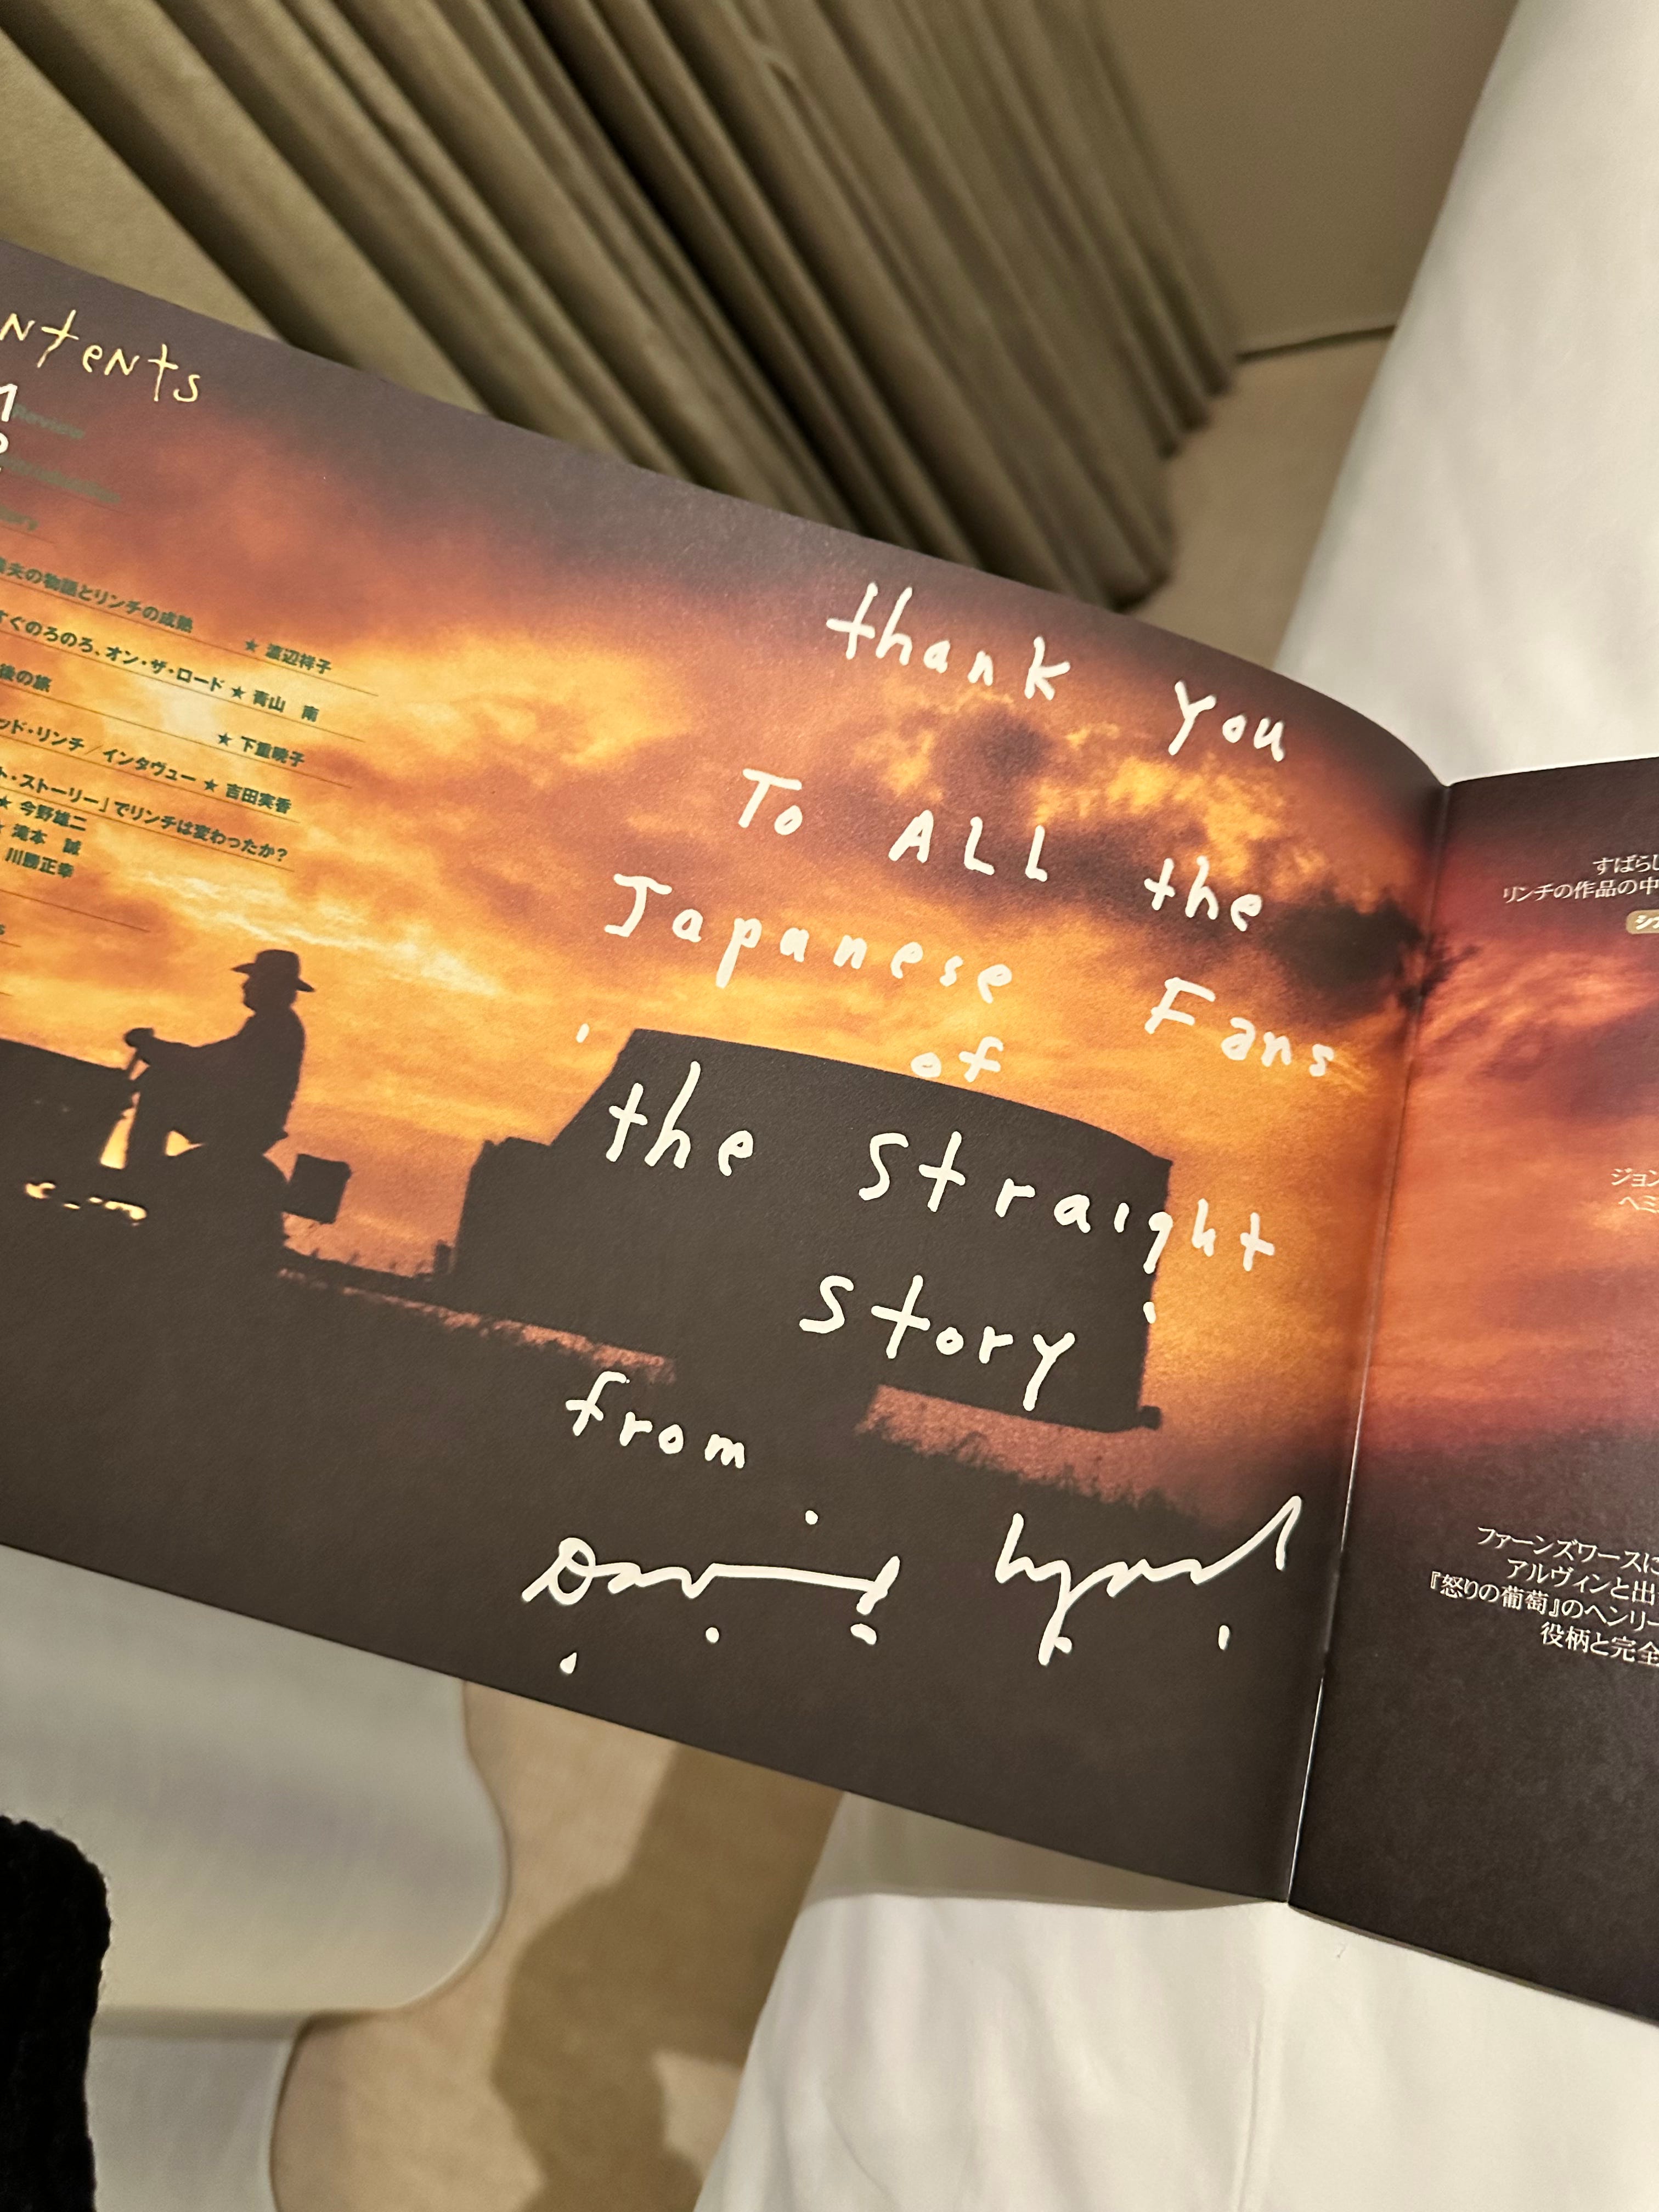 ntents
Review
夫の物語とリンチの成熟 ★ 渡辺祥子
すぐのろのろ、オン・ザ・ロード ★ 青山 南
後の旅 ★ 下重暁子
ッド・リンチ／インタヴュー ★ 吉田実香
ト・ストーリー」でリンチは変わったか?
★ 今野雄二
★ 滝本 誠
川勝正幸
thank you
To ALL the
Japanese Fans
of
'the straight
story'
from
David Lynch
すばらし
リンチの作品の中
ジョン
ヘミ
ファーンズワースに
アルヴィンと出
『怒りの葡萄』のヘンリー
役柄と完全